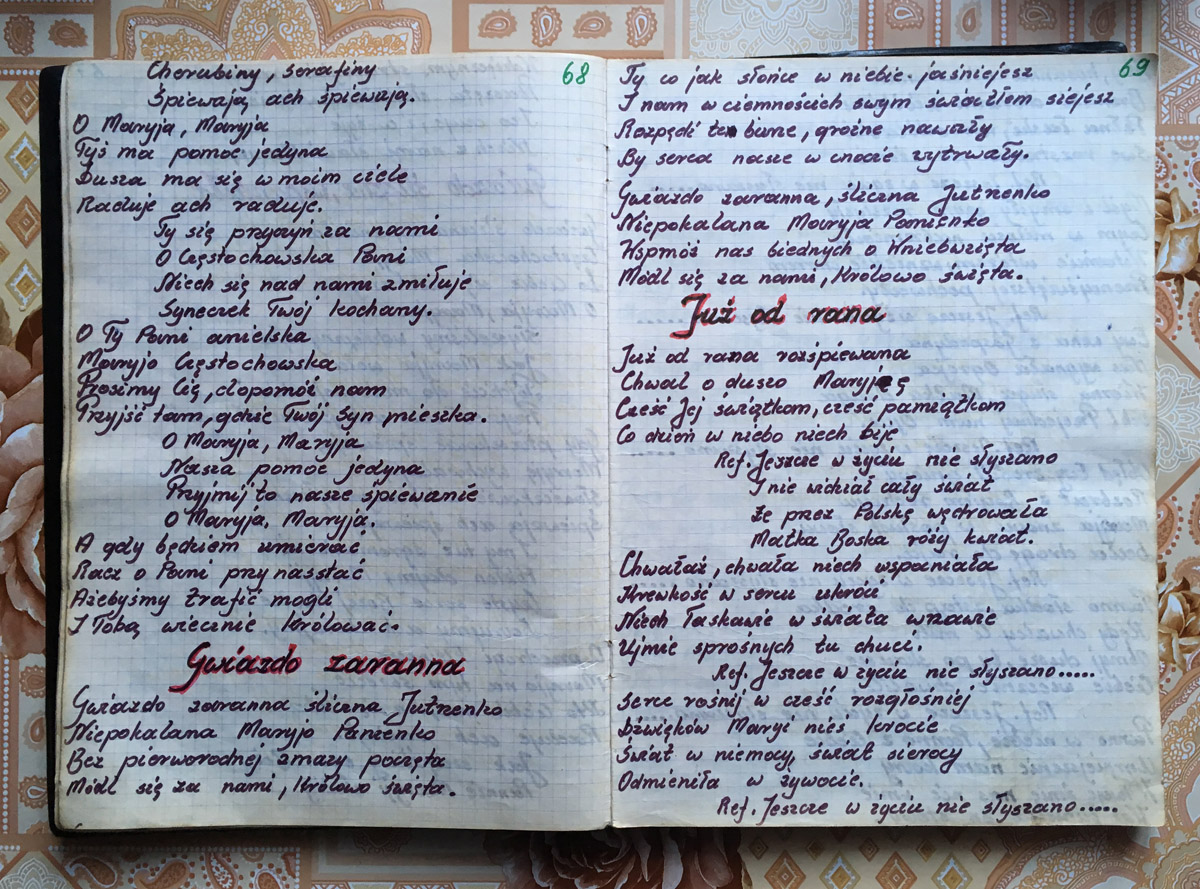 68
Cherubiny, Serafiny
Śpiewają ach śpiewają.
O Maryja, Maryja
Tyś ma pomoc jedyna
Dusza ma się w moim ciele
Raduje ach raduje.
Ty się przyczyń za nami
O Częstochowska Pani
Niech się nad nami zmiłuje
Syneczek Twój kochany.
O Ty Pani anielska
Maryjo Częstochowska
Prosimy Cię, dopomóż nam
Przyjść tam, gdzie Twój Syn mieszka.
O Maryja, Maryja
Nasza pomoc jedyna
Przyjmij to nasze śpiewanie
O Maryja, Maryja.
A gdy będziem umierać
Racz o Pani przy nas stać
Ażebyśmy trafić mogli
Z Tobą wiecznie królować.
Gwiazdo zaranna
Gwiazdo zaranna śliczna Jutrzenko
Niepokalana Maryjo Panienko
Bez pierworodnej zmazy poczęta
Módl się za nami, Królowo święta.
69
Ty co jak słońce w niebie jaśniejesz
I nam w ciemnościach swym światłem siejesz
Rozpędź te burze, groźne nawały
By serca nasze w cnocie wytrwały.
Gwiazdo zaranna, śliczna Jutrzenko
Niepokalana Maryja Panienko
Wspmóż nas biednych o Wniebwzięta
Módl się za nami, Królowo święta.
Już od rana
Już od rana rozśpiewana
Chwal o duszo Maryję
Cześć Jej świątkom, cześć pamiątkom
Co dzień w niebo niech bije
Ref. Jeszcze w życiu nie słyszano
I nie widział cały świat
Że przez Polskę wędrowała
Matka Boska róży kwiat.
Chwałaż, chwała niech wspaniała
Krewkość w sercu ukróci
Niech łaskawie w świata wrzawie
Ujmie sprośnych tu chuci.
Ref. Jeszcze w życiu nie słyszano.....
Serce rośnij w cześć rozgłośniej
Dźwięków Maryi nieś krocie
Świat w niemocy, świat sierocy
Odmieniła w żywocie.
Ref. Jeszcze w życiu nie słyszano.....